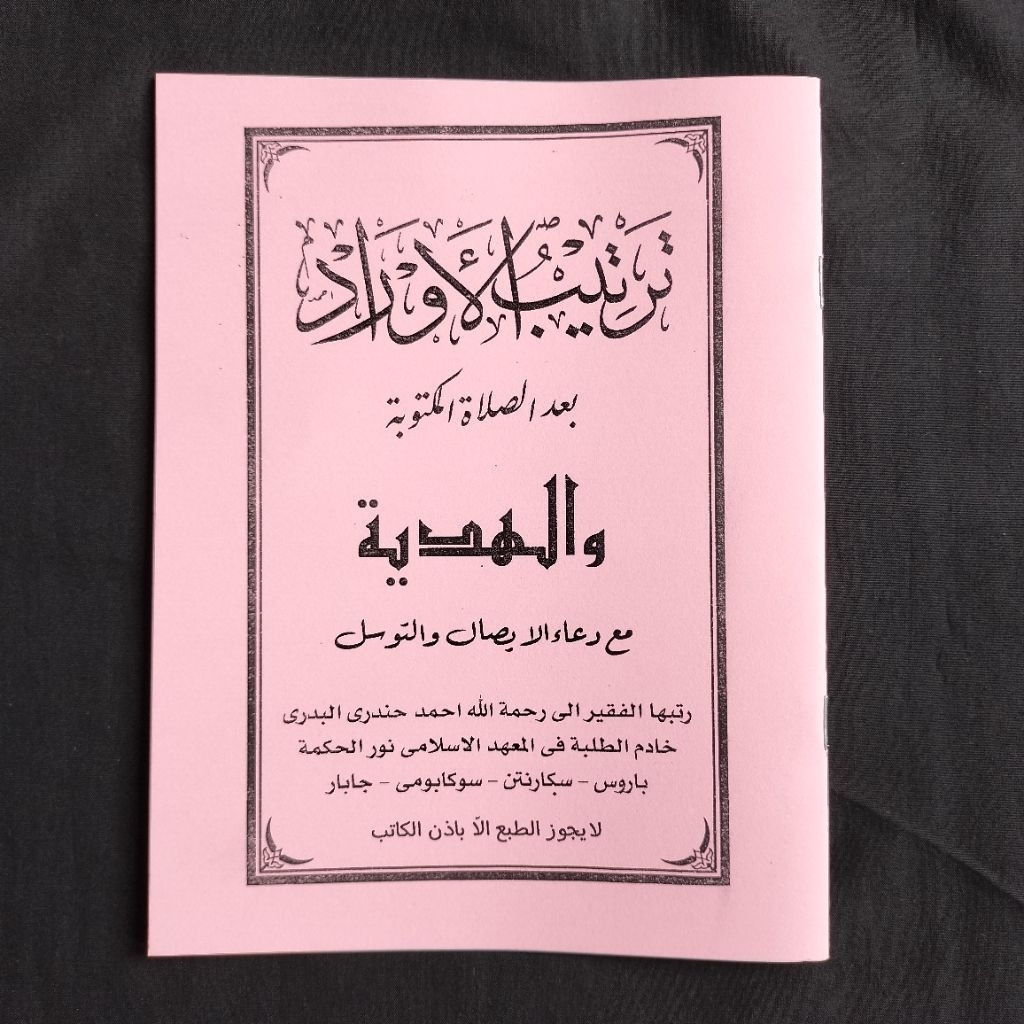 تَرْتِيْبُ الْأَوْرَادِ
بعد الصلاة المكتوبة
والهدية
مع دعاء الايصال والتوسل
رتبها الفقير الى رحمة الله احمد حندرى البدرى
خادم الطلبة فى المعهد الاسلامى نور الحكمة
باروس - سكارنتن - سوكابومى - جابار
لايجوز الطبع الاّ باذن الكاتب